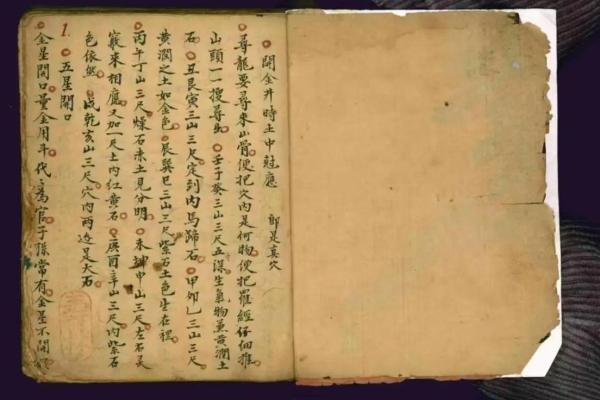 開金井時土中尅應 即是真穴
尋龍要尋來山骨便把穴內是何物便把羅經仔細推
山頭一一搜尋出 壬子癸三山三尺五深生氣物並黃潤土
石 丑艮寅三山三尺定到內馬蹄石 甲卯乙三山三尺
黃潤之土如金色 辰巽巳三山三尺紫石土色生在裡
丙午丁山三尺燥石赤土見分明 未坤申山三尺左右灵
竅來相應又加一尺土內紅黃石 庚酉辛山三尺內紫石
色依然 戌乾亥山三尺穴內兩边是大石
1. 五星開口
金星開口量金用斗代々為官子孫常有金星不開